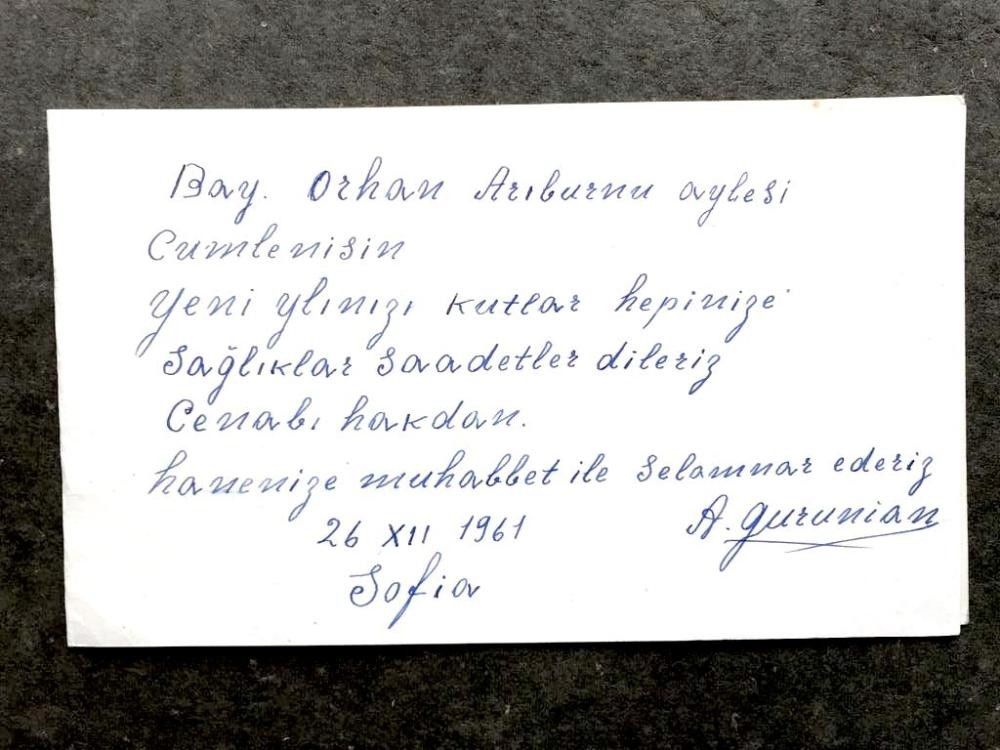 Bay. Orhan Arıburnu aylesi
Cumlenisin
Yeni ylınızı kutlar hepinize
Sağlıklar Saadetler dileriz
Cenabı hakdan.
hanenize muhabbet ile Selamnar ederiz
26 XII 1961 A. gurunian
Sofia